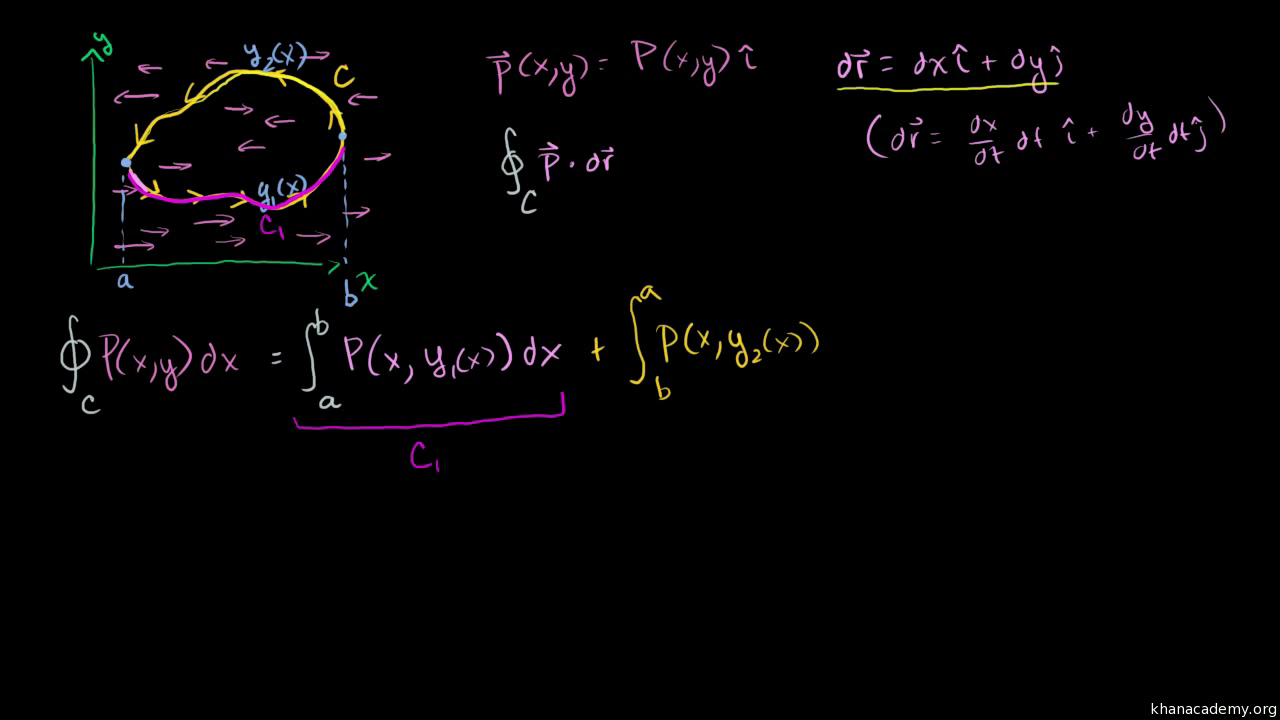 y
y₂(x)
C
y₁(x)
C₁
a
b
x
p⃗(x,y) = P(x,y) î
∮_C p⃗ · dr⃗
dr⃗ = dx î + dy ĵ
(dr⃗ = dx/dt dt î + dy/dt dt ĵ)
∮_C P(x,y) dx = ∫_a^b P(x, y₁(x)) dx + ∫_b^a P(x, y₂(x))
C₁
khanacademy.org